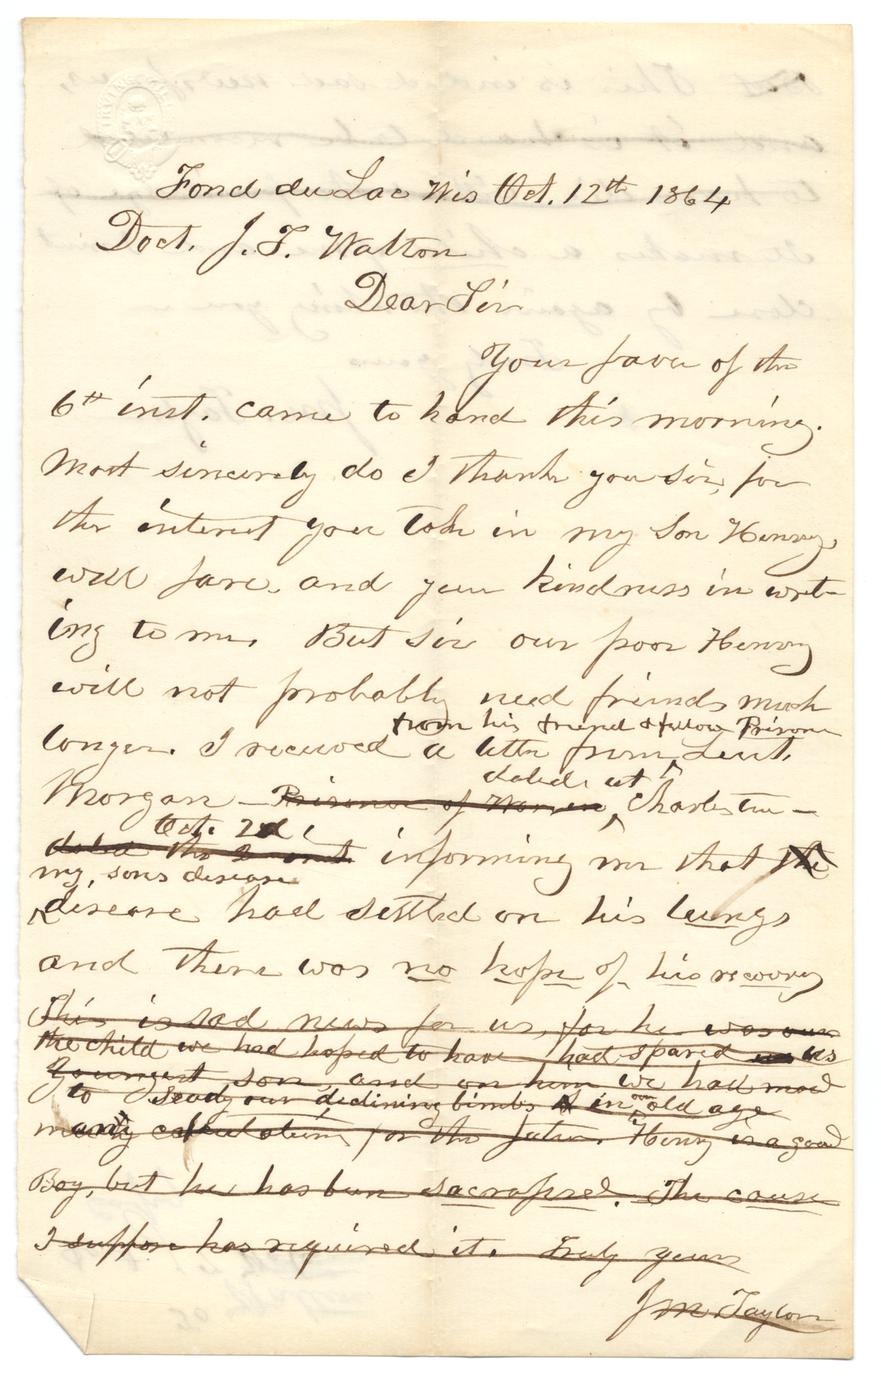 Fond du Lac Wis Oct. 12th 1864
Doct. J. F. Walton
Dear Sir
Your favor of the
6th inst. came to hand this morning.
Most sincerely do I thank you sir, for
the interest you take in my Son Henrys
well fare, and your kindness in writ-
ing to me. But sir our poor Henry
will not probably need friends much
from his friend & fellow Prisoner
longer. I received a letter from Lieut.
dated at
Morgan – Prisoner of War in Charleston –
Oct. 2d
dated the 2 inst informing me that the
my sons disease
disease had settled on his lungs
and there was no hope of his recovery
This is sad news for us, for he was our
the child we had hoped to have had spared us
Youngest son, and on him we had made
to steady our declining limbs in our old age
many calculations for the future. Henry is a good
Boy, but he has been sacrafised. The cause
I suppose has required it. Truly yours
J M Taylor